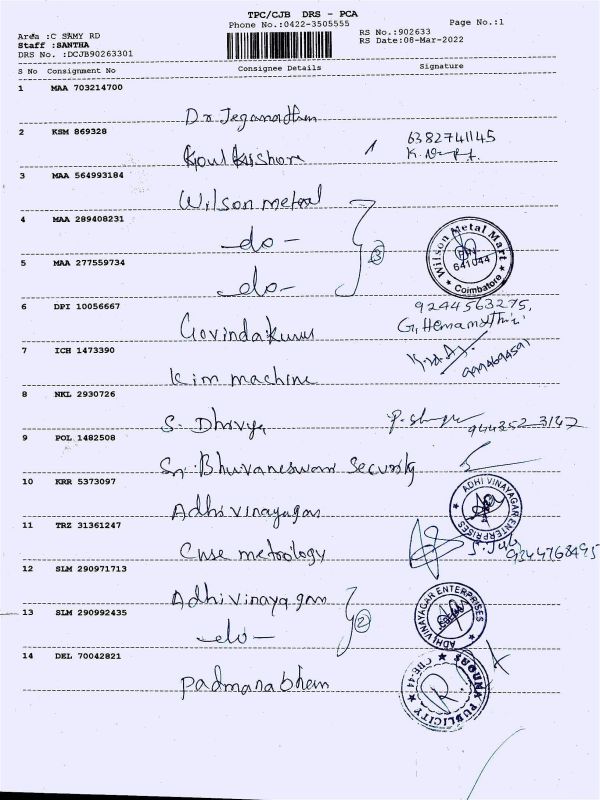 TPC/CJB DRS - PCA
Phone No.:0422-3505555
Page No.:1
Area :C SAMY RD
Staff :SANTHA
DRS No. :DCJB90263301
RS No.:902633
RS Date:08-Mar-2022
S No Consignment No Consignee Details Signature
1 MAA 703214700
Dr Jeganathan
2 KSM 869328
6382741145
3 MAA 564993184
Wilson metal
4 MAA 289408231
-do-
5 MAA 277559734
-do-
3
Wilson Metal Mart
641044
Coimbatore
6 DPI 10056667
9244563275,
G, Hemamathi
7 ICH 1473390
9994694591
Kim machine
8 NKL 2930726
S. Dhivya
9 POL 1482508
Sri Bhuvaneswari Security
10 KRR 5373097
Adhi vinayagar
ADHI VINAYAGAR ENTERPRISES
11 TRZ 31361247
metrology
9344768495
12 SLM 290971713
Adhi vinayagar
13 SLM 290992435
-do-
2
ADHI VINAYAGAR ENTERPRISES
14 DEL 70042821
Padmanabhan
PUBLICITY
CBE-44